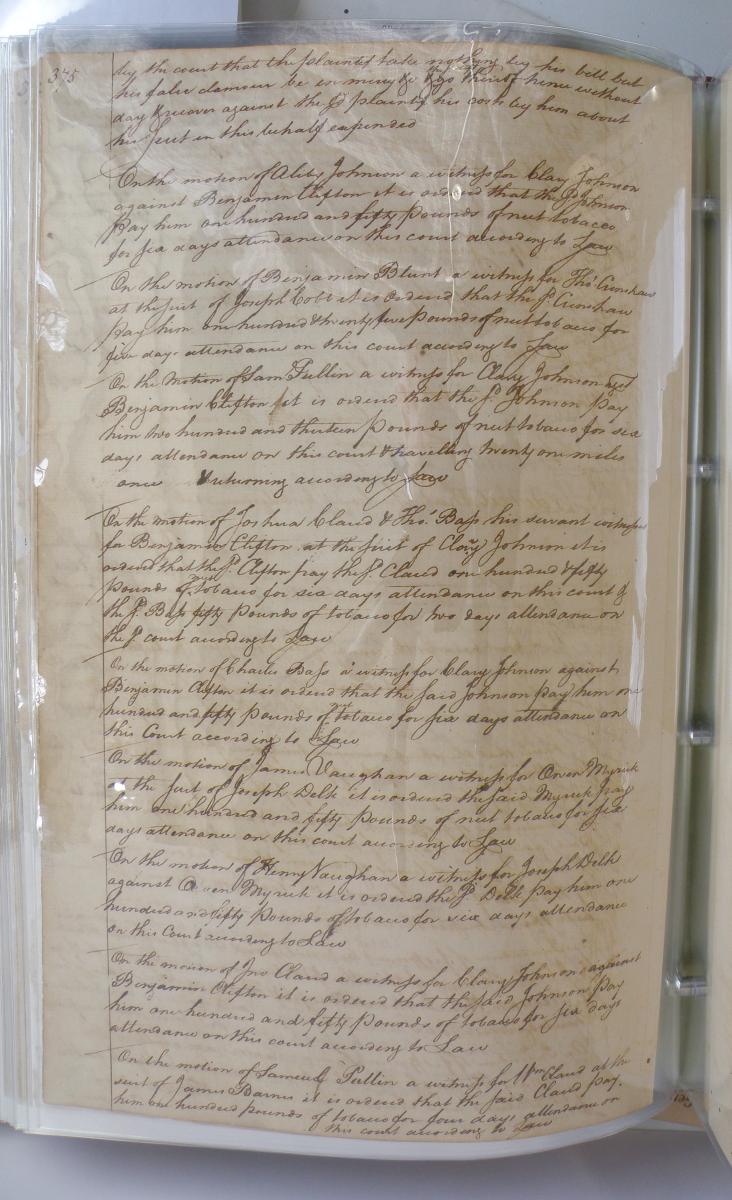 375
by the court that the plaintif take nothing by his bill but
his false clamour be in mercy &c & go thereof hence without
day & recover against the sd plaintif his costs by him about
his suit in this behalf expended
On the motion of Johnson a witness for Clary Johnson
against Benjamin Clifton it is ordered that the sd Johnson
Pay him one hundred and fifty pounds of nett tobacco
for six days attendance on this court according to Law
On the motion of Benjamin Blunt a witness for Thos. Crenshaw
at the suit of Joseph Cobb it is ordered that the sd. Crenshaw
Pay him one hundred & twenty five Pounds of nett tobacco for
five days attendance on this court according to Law
On the Motion of Sam Fullin a witness for Clary Johnson agst
Benjamin Clifton it is ordered that the sd. Johnson pay
him two hundred and thirteen pounds of nett tobacco for six
days attendance on this court & travelling twenty one miles
once & returning according to Law
On the motion of Joshua Claud & Thos. Bass his servant witnesses
for Benjamin Clifton at the suit of Clary Johnson it is
ordered that the sd. Clifton pay the sd. Claud one hundred & fifty
pounds of tobacco for six days attendance on this court &
the sd. Bass fifty pounds of tobacco for two days attendance on
the sd court according to Law
On the motion of Charles Bass a witness for Clary Johnson against
Benjamin Clifton it is ordered that the said Johnson pay him one
hundred and fifty pounds of tobacco for six days attendance on
this Court according to Law
On the motion of James Vaughan a witness for Owen Myrick
at the suit of Joseph Delk it is ordered the said Myrick pay
him one hundred and fifty pounds of nett tobacco for six
days attendance on this court according to Law
On the motion of Henry Vaughan a witness for Joseph Delk
against Owen Myrick it is ordered the sd. Delk pay him one
hundred and fifty pounds of tobacco for six days attendance
on this Court according to Law
On the motion of Jno Claud a witness for Clary Johnson against
Benjamin Clifton it is ordered that the said Johnson Pay
him one hundred and fifty pounds of tobacco for six days
attendance on this court according to Law
On the motion of Samuel Fullin a witness for Wm Claud at the
suit of James Barnes it is ordered that the said Claud pay
him one hundred pounds of tobacco for four days attendance on
this court according to Law